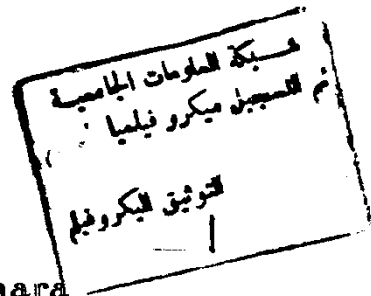 شبكة المعلومات الجامعية
تم التسجيل ميكروفيلميا
التوثيق الميكروفيلم
nara